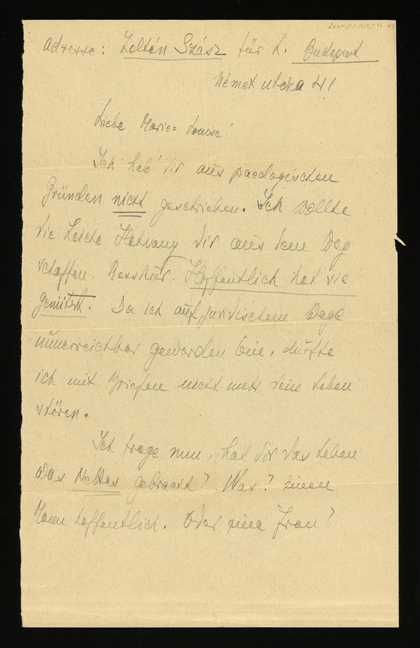 Adresse: Zoltán Szász für L. Budapest
Német utcka 4!
Liebe Marie-Louise!
Ich hab' dir aus paedagogischen
Gründen nicht geschrieben. Ich wollte
die Leiche Hatvany dir aus dem Weg
schaffen. Hoffentlich hat sie
genützt. Da ich auf juristischem Wege
unerreichbar geworden bin, dürfte
ich mit Briefen nicht mehr dein Leben
stören.
Ich frage nun, hat dir das Leben
was Nettes gebracht? Was? Einen
Mann hoffentlich. Oder eine Frau?